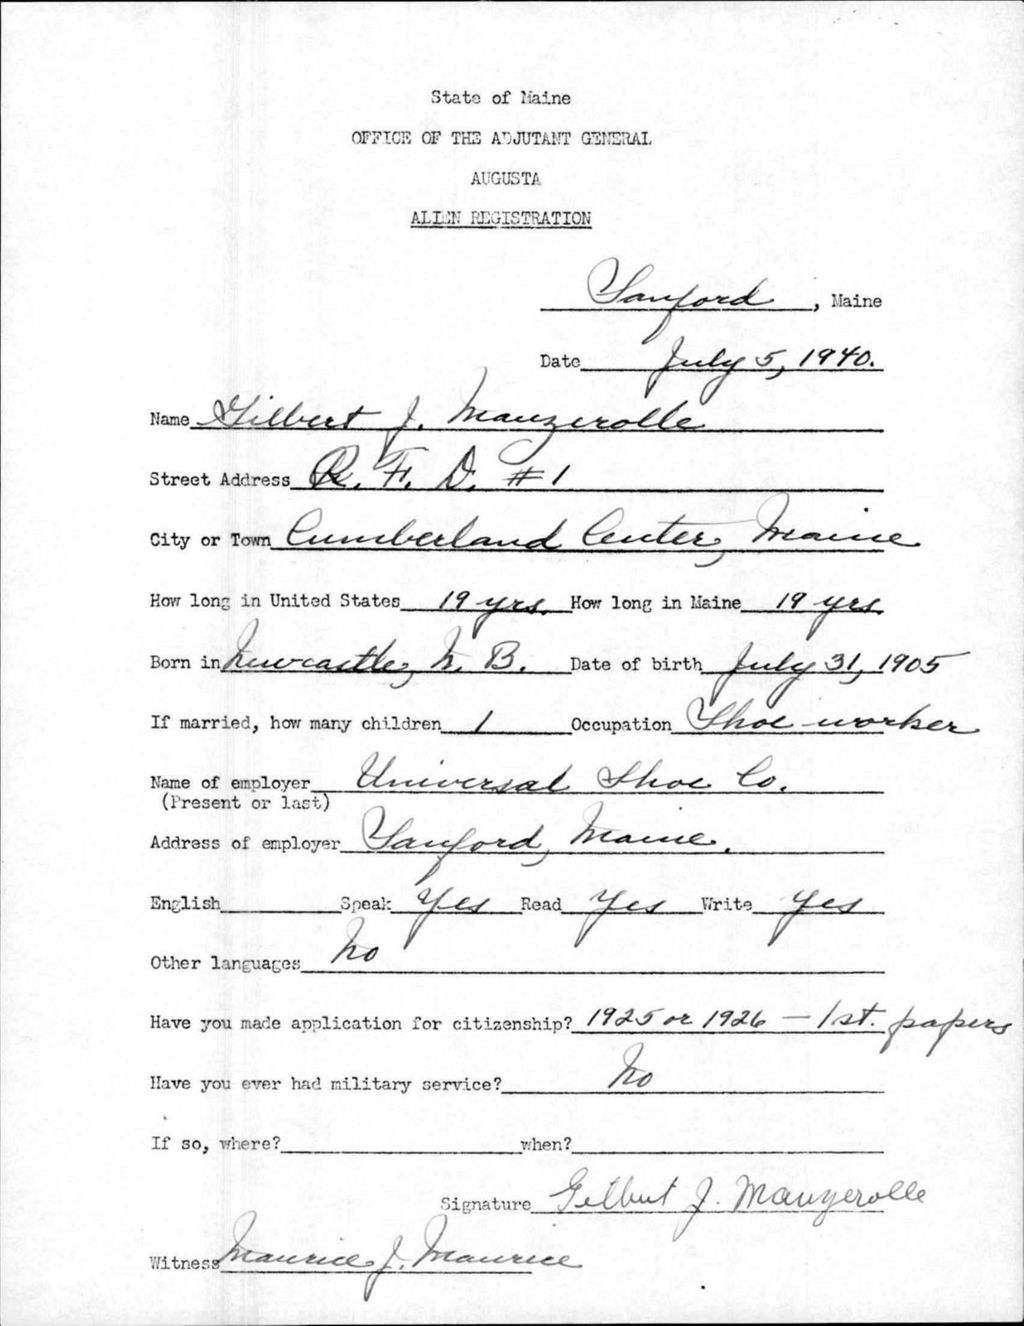 State of Maine
OFFICE OF THE ADJUTANT GENERAL
AUGUSTA
ALIEN REGISTRATION
Sanford, Maine
Date July 5, 1940.
Name Gilbert J. Manzerolle
Street Address R. F. D. #1
City or Town Cumberland Center, Maine
How long in United States 19 yrs. How long in Maine 19 yrs.
Born in Newcastle, N. B. Date of birth July 31, 1905
If married, how many children 1 Occupation Shoe worker
Name of employer Universal Shoe Co.
(Present or last)
Address of employer Sanford, Maine.
English Speak Yes Read Yes Write Yes
Other languages No
Have you made application for citizenship? 1925 or 1926 - 1st. papers
Have you ever had military service? No
If so, where? when?
Signature Gilbert J. Manzerolle
Witness Maurice J. Maurice